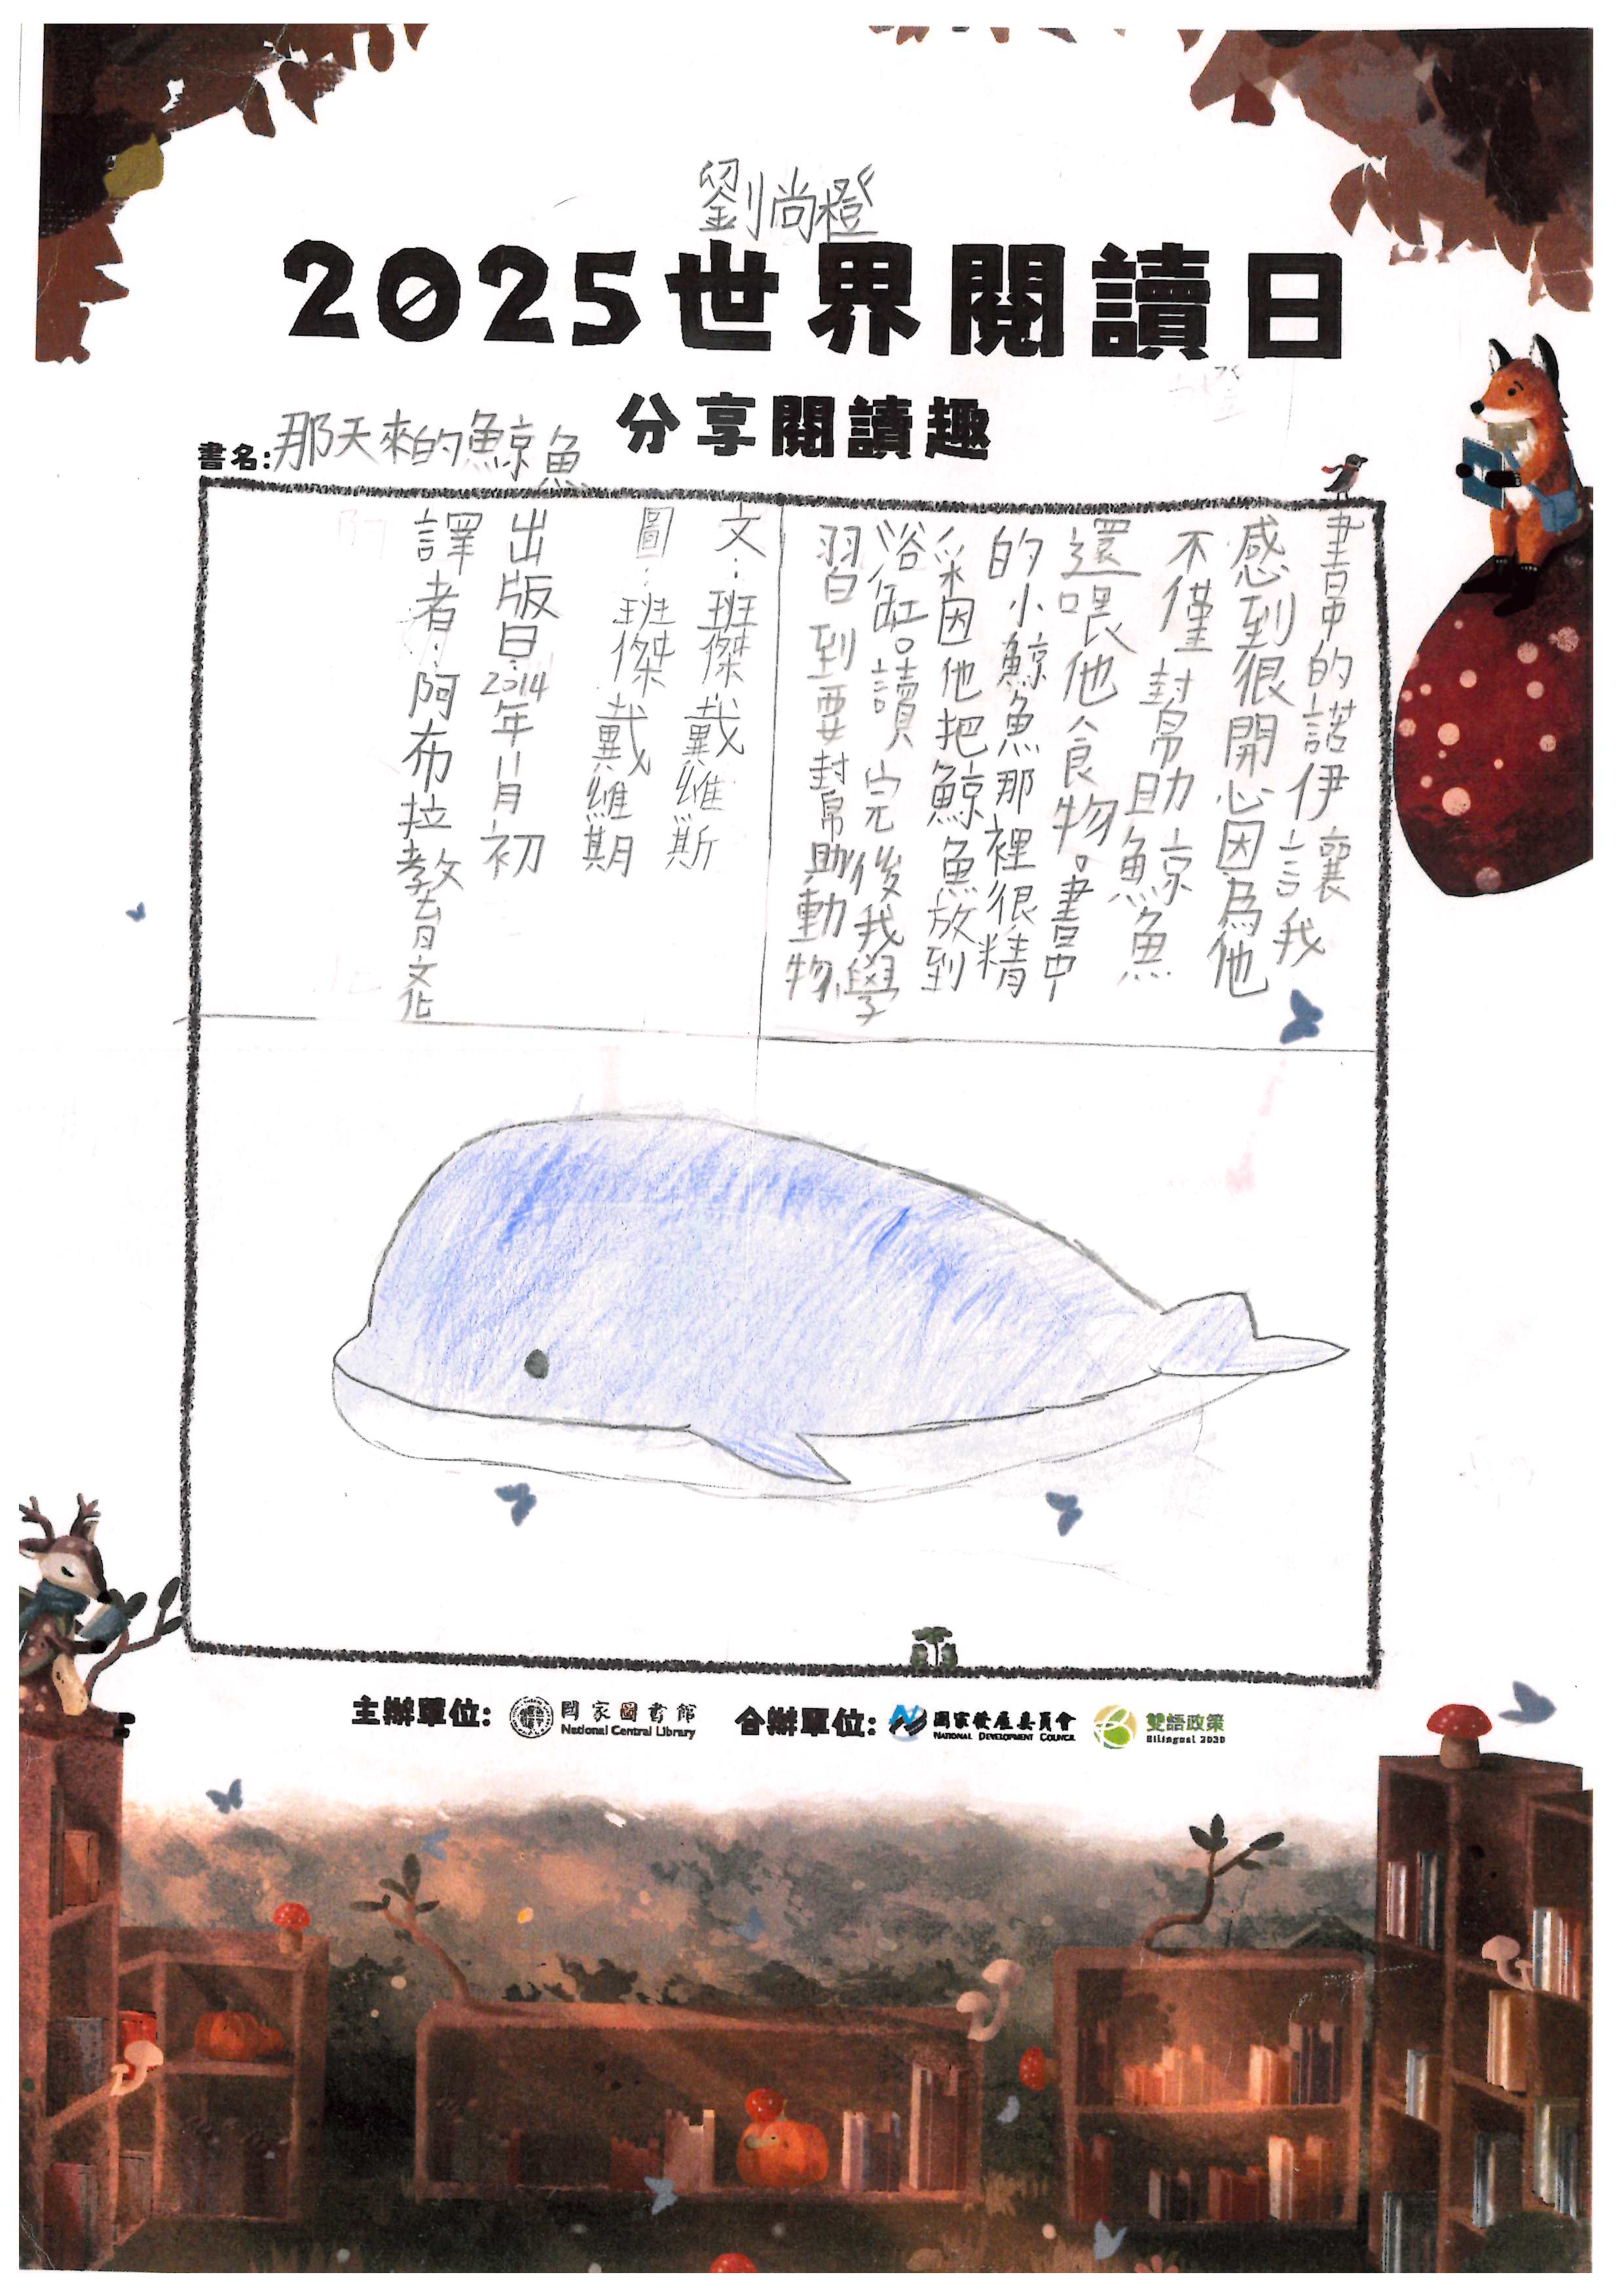 劉尚橙
2025世界閱讀日
分享閱讀趣
書名:那天來的鯨魚
書中的諾伊讓
感到很開心因為他
不僅幫助鯨魚
還喂他食物。書中
的小鯨魚那裡很精
采因他把鯨魚放到
浴缸。讀完後我學
習到要幫助動物
文:班傑戴維斯
圖:班傑戴維期
出版日:2014年11月初
譯者:阿布拉教育文化
主辦單位: 國家圖書館
National Central Library
合辦單位: 國家發展委員會
National Development Council
雙語政策
Bilingual 2030